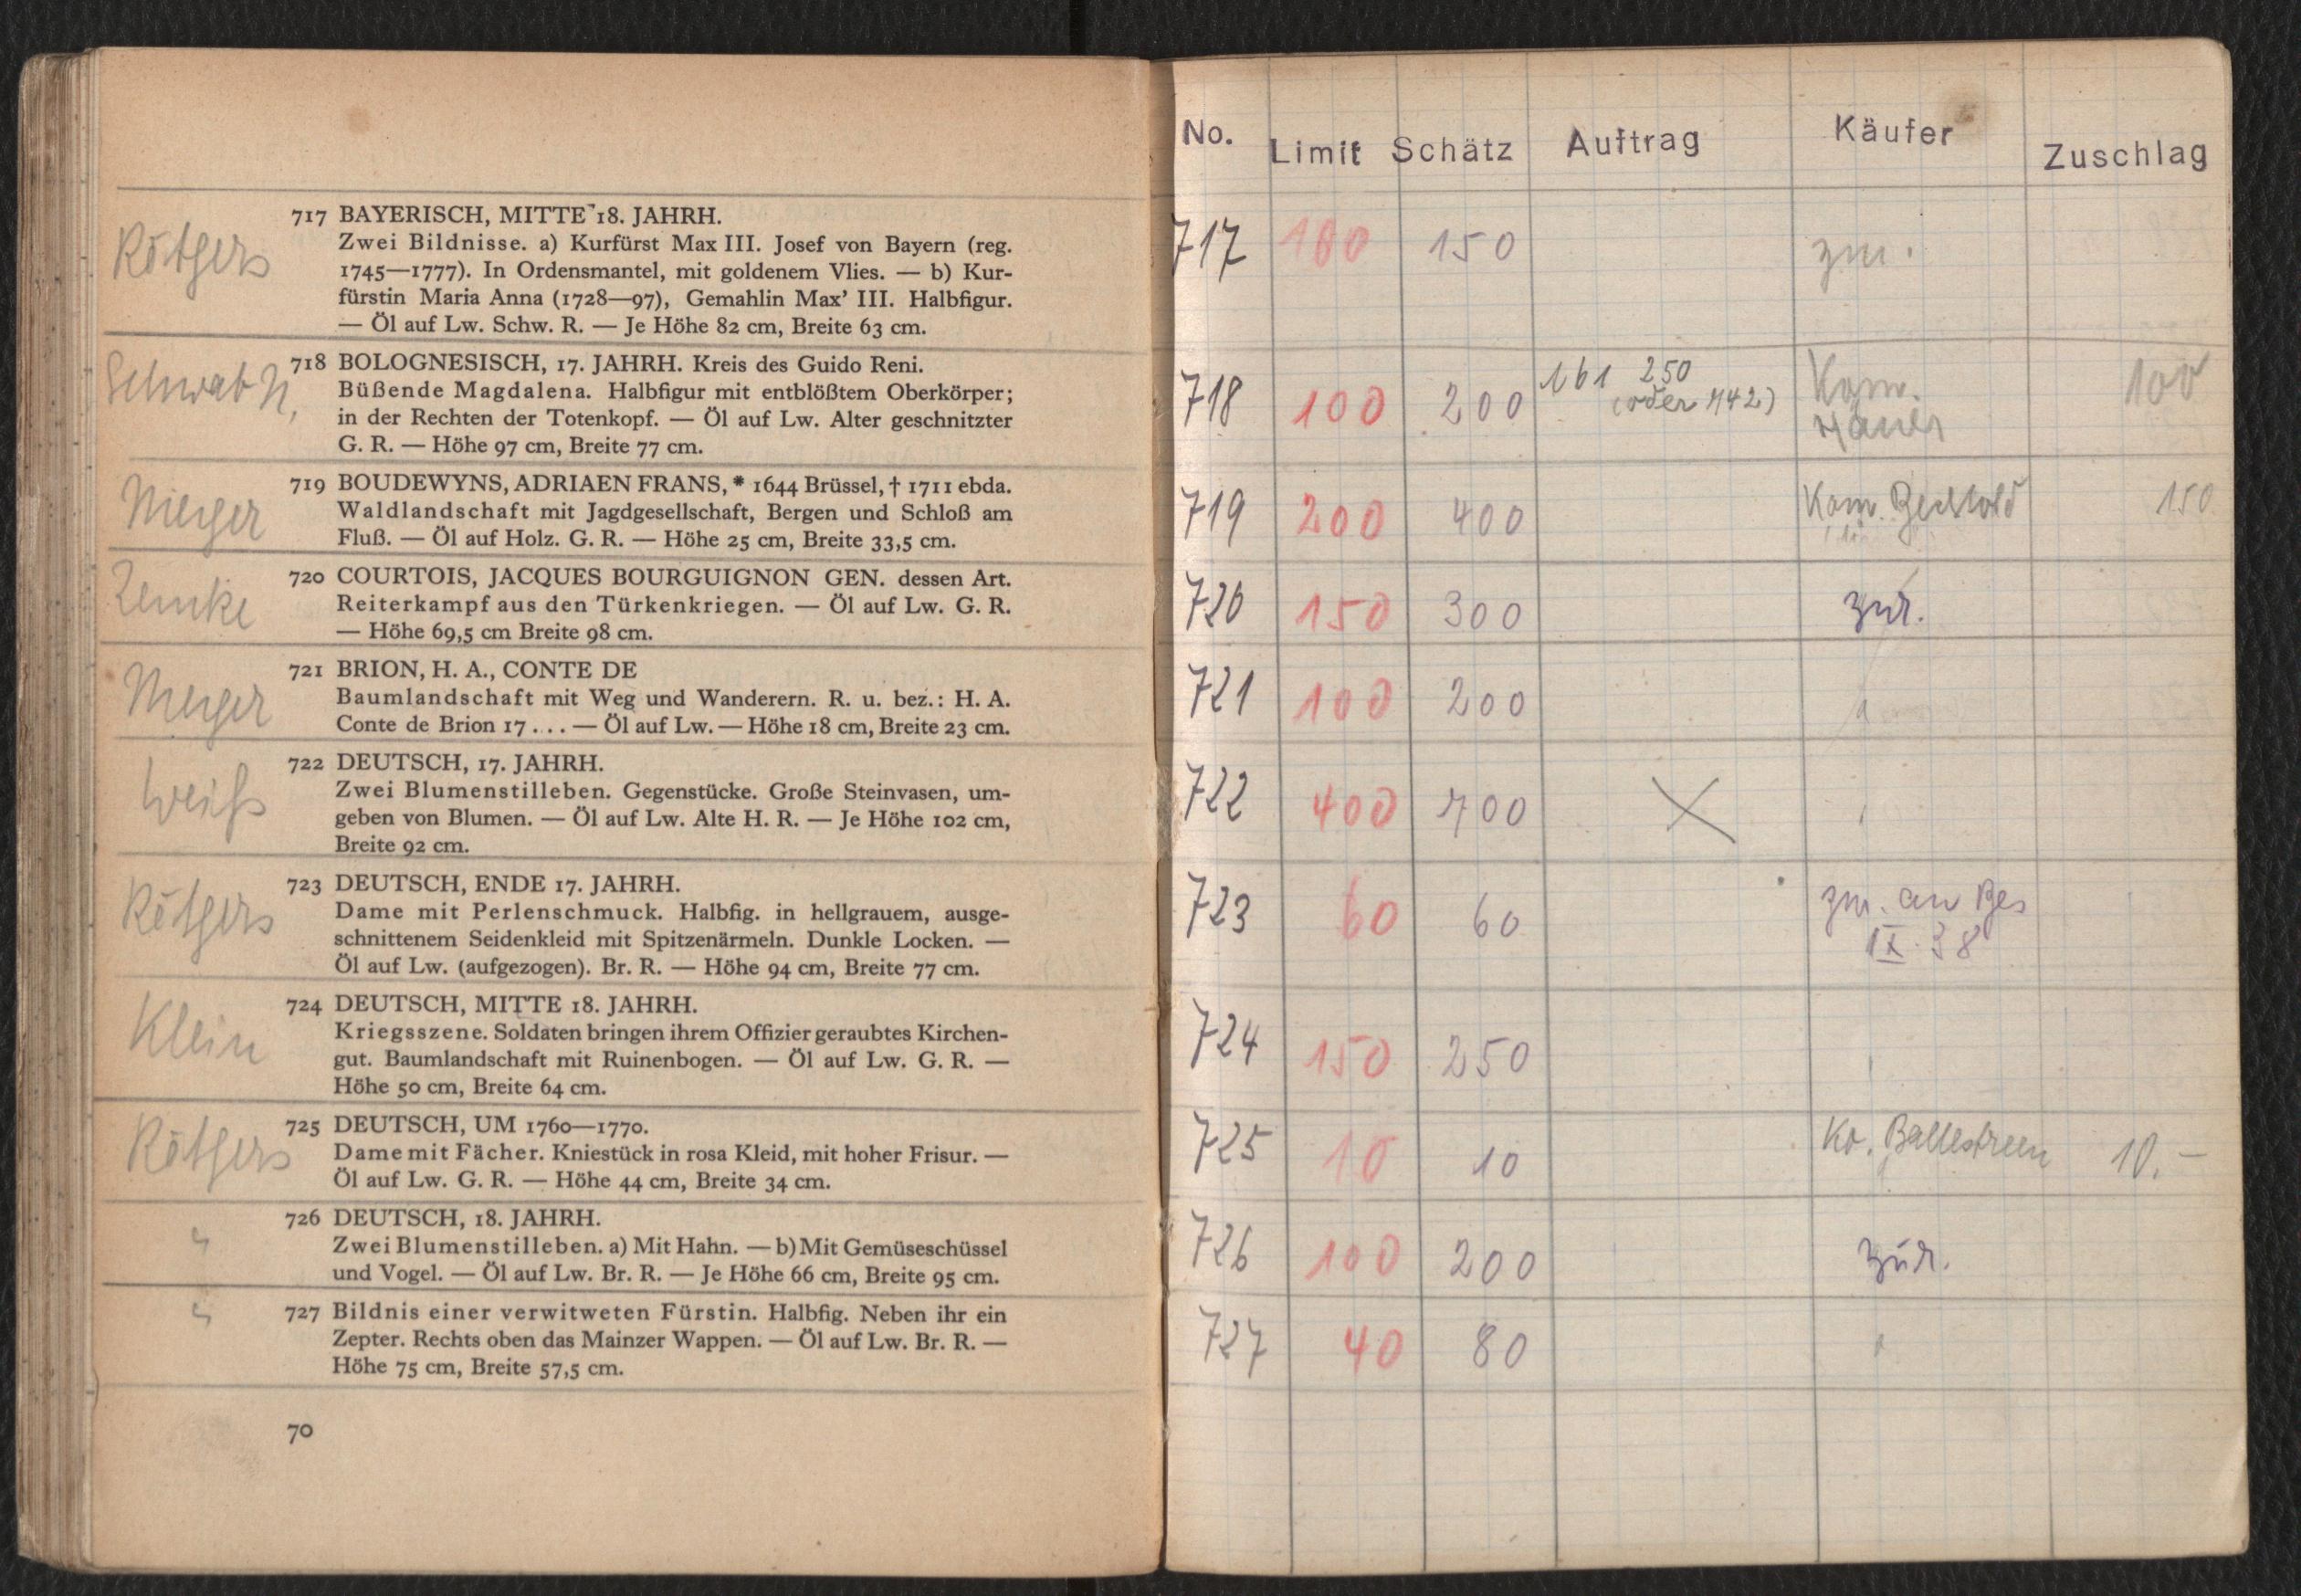 Rötgers
717 BAYERISCH, MITTE 18. JAHRH.
Zwei Bildnisse. a) Kurfürst Max III. Josef von Bayern (reg.
1745—1777). In Ordensmantel, mit goldenem Vlies. — b) Kur-
fürstin Maria Anna (1728—97), Gemahlin Max' III. Halbfigur.
— Öl auf Lw. Schw. R. — Je Höhe 82 cm, Breite 63 cm.
Schwab
718 BOLOGNESISCH, 17. JAHRH. Kreis des Guido Reni.
Büßende Magdalena. Halbfigur mit entblößtem Oberkörper;
in der Rechten der Totenkopf. — Öl auf Lw. Alter geschnitzter
G. R. — Höhe 97 cm, Breite 77 cm.
719 BOUDEWYNS, ADRIAEN FRANS, * 1644 Brüssel, † 1711 ebda.
Waldlandschaft mit Jagdgesellschaft, Bergen und Schloß am
Fluß. — Öl auf Holz. G. R. — Höhe 25 cm, Breite 33,5 cm.
720 COURTOIS, JACQUES BOURGUIGNON GEN. dessen Art.
Reiterkampf aus den Türkenkriegen. — Öl auf Lw. G. R.
— Höhe 69,5 cm Breite 98 cm.
721 BRION, H. A., CONTE DE
Baumlandschaft mit Weg und Wanderern. R. u. bez.: H. A.
Conte de Brion 17 . . . — Öl auf Lw. — Höhe 18 cm, Breite 23 cm.
Weiß
722 DEUTSCH, 17. JAHRH.
Zwei Blumenstilleben. Gegenstücke. Große Steinvasen, um-
geben von Blumen. — Öl auf Lw. Alte H. R. — Je Höhe 102 cm,
Breite 92 cm.
Rötgers
723 DEUTSCH, ENDE 17. JAHRH.
Dame mit Perlenschmuck. Halbfig. in hellgrauem, ausge-
schnittenem Seidenkleid mit Spitzenärmeln. Dunkle Locken. —
Öl auf Lw. (aufgezogen). Br. R. — Höhe 94 cm, Breite 77 cm.
Klein
724 DEUTSCH, MITTE 18. JAHRH.
Kriegsszene. Soldaten bringen ihrem Offizier geraubtes Kirchen-
gut. Baumlandschaft mit Ruinenbogen. — Öl auf Lw. G. R. —
Höhe 50 cm, Breite 64 cm.
Rötgers
725 DEUTSCH, UM 1760—1770.
Dame mit Fächer. Kniestück in rosa Kleid, mit hoher Frisur. —
Öl auf Lw. G. R. — Höhe 44 cm, Breite 34 cm.
726 DEUTSCH, 18. JAHRH.
Zwei Blumenstilleben. a) Mit Hahn. — b) Mit Gemüseschüssel
und Vogel. — Öl auf Lw. Br. R. — Je Höhe 66 cm, Breite 95 cm.
727 Bildnis einer verwitweten Fürstin. Halbfig. Neben ihr ein
Zepter. Rechts oben das Mainzer Wappen. — Öl auf Lw. Br. R. —
Höhe 75 cm, Breite 57,5 cm.
70
No. Limit Schätz Auftrag Käufer Zuschlag
717 100 150 zur.
718 100 200 161 250 Kom. 100
(oder 742)
719 200 400 Kom. 150
720 150 300 zur.
721 100 200
722 400 700 X
723 60 60 zur. an Bes
IX. 38
724 150 250
725 10 10 Ko. Ballestrem 10.—
726 100 200 zur.
727 40 80